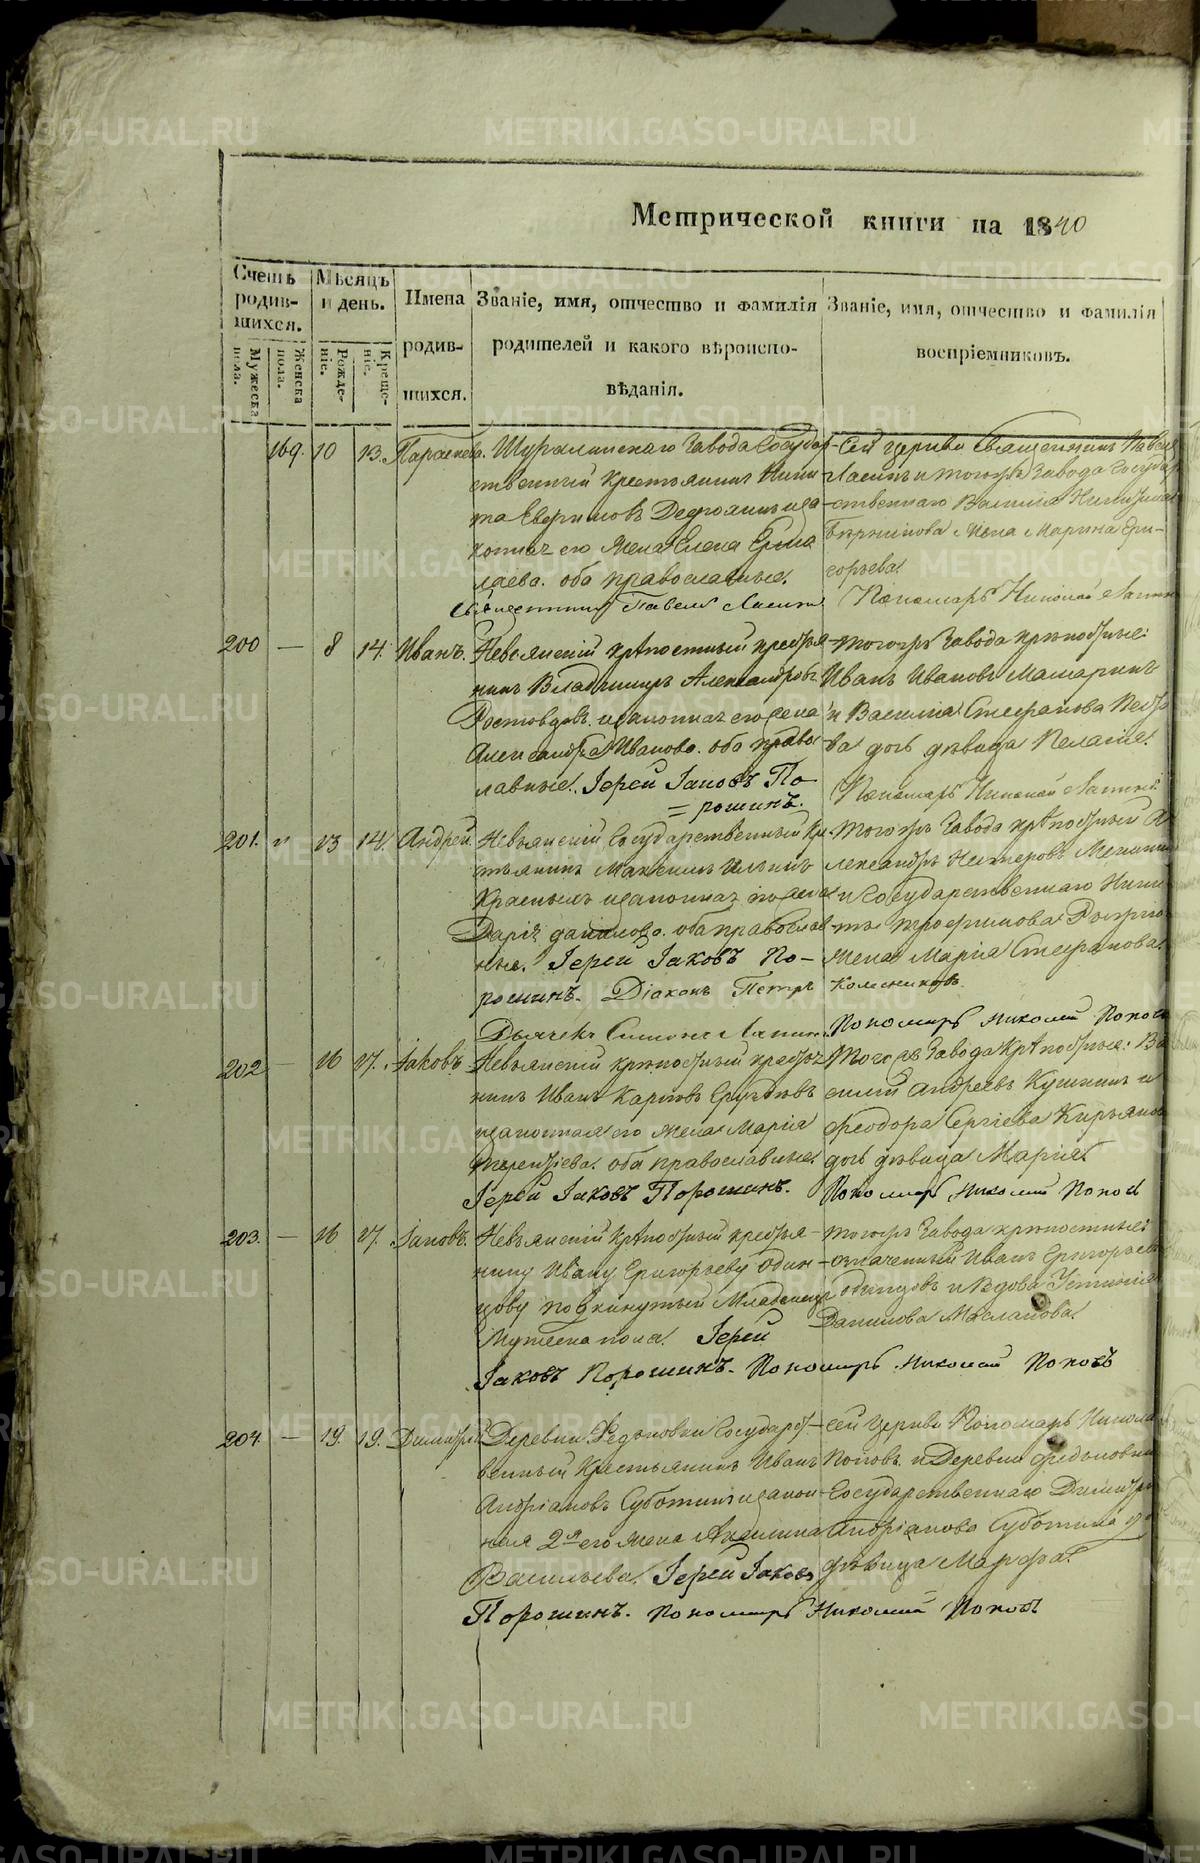 Метрической книги на 1840
Счетъ родив-шихся.
Мужеска пола.
Женска пола.
Мѣсяцъ и день.
Рожде-ніе.
Креще-ніе.
Имена родив-шихся.
Званіе, имя, отчество и фамилія
родителей и какого вѣроиспо-
вѣданія.
Званіе, имя, отчество и фамилія
воспріемниковъ.
169. 10 13. Параскева.
Шуралинскаго завода Государ-
ственный крестьянинъ Ники-
та Евфимовъ
конная его жена Елена Ермо
лаева. оба православные.
Священникъ Павелъ
Сей церкви священникъ Павелъ
и тогожъ завода Государ
ственнаго
жена Марина Гри-
горьева.
Пономарь Николай
200 — 8 14. Иванъ.
Невьянскій крѣпостный крестья-
нинъ Владимиръ Александровъ
Ростовцовъ. и законная его жена
Александра Иванова. оба правос
лавные. Іерей Іаковъ По-
= рошинъ.
тогожъ завода крѣпостные:
Иванъ Ивановъ Машаринъ
и Василья Стефанова
ва дочь дѣвица Пелагія.
Пономарь Николай
201. 13 14. Андрей.
Невьянскій Государственный кре-
стьянинъ Максимъ Ильинъ
и законная его жена
Дарія Данилова. оба православ-
ные. Іерей Іаковъ По-
рошинъ. Діаконъ Петръ Колесниковъ
Дьячекъ Симонъ
Тогожъ завода крѣпостный А
лександръ
и Государственнаго Ники
ты
жена Марія Стефанова.
Пономарь Николай Поповъ
202 — 16 17. Іаковъ.
Невьянскій крѣпостный крестья
нинъ Иванъ Карповъ
и законная его жена Марія
Терентіева. оба православные.
Іерей Іаковъ Порошинъ.
Тогожъ завода крѣпостные: Ва
силій Андреевъ Кушкинъ и
Феодора Сергіева Кирьянов
дочь дѣвица Марія.
Пономарь Николай Поповъ
203. — 16 17. Іаковъ.
Невьянскій крѣпостный крестья-
нину Ивану Григорьеву Один-
цову подкинутый младенецъ
мужеска пола. Іерей
Іаковъ Порошинъ. Пономарь Николай Поповъ
тогожъ завода крѣпостные:
означенный Иванъ Григорьевъ
Одинцовъ и вдова Устинія
Данилова Масланова.
204. — 19. 19. Димитрій
Деревни Федьковки Государст-
венный крестьянинъ Иванъ
Андріановъ Суботинъ и закон-
ная 2я его жена Акилина
Васильева. Іерей Іаковъ
Порошинъ. Пономарь Николай Поповъ
сей церкви Пономарь Никола
Поповъ. и Деревни Федьковки
Государственнаго Димитрі
Андріанова Суботина до
дѣвица Марфа.
METRIKI.GASO-URAL.RU